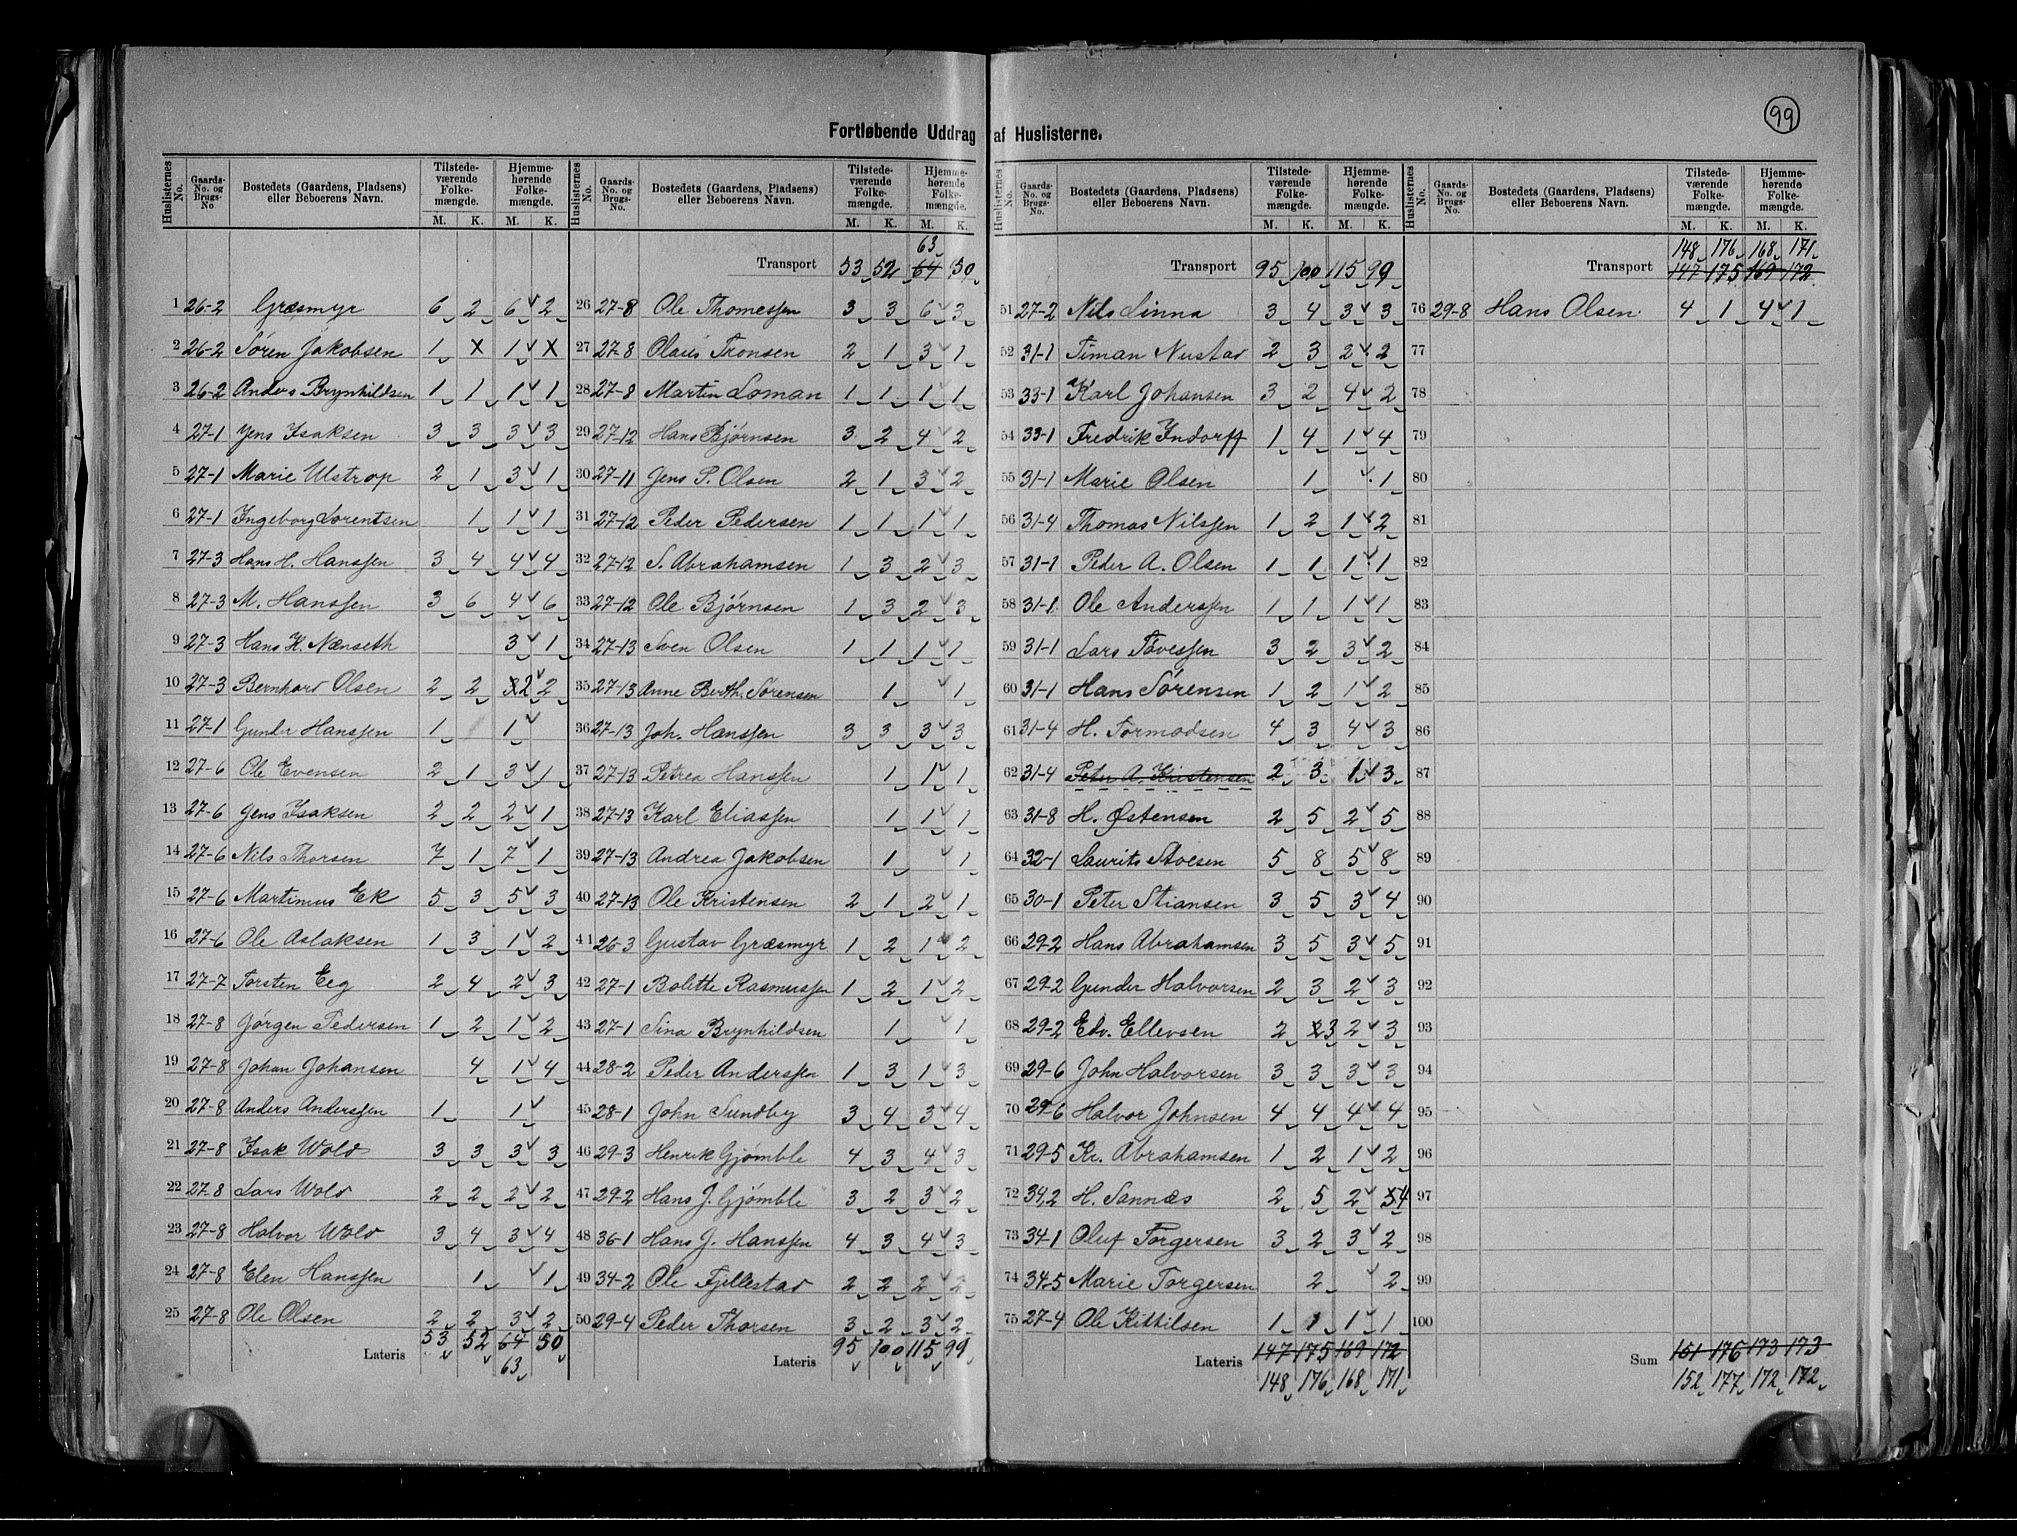 99
Fortløbende Uddrag af Huslisterne.
Huslisternes No. | Gaards-No. og Brugs-No | Bostedets (Gaardens, Pladsens) eller Beboerens Navn. | Tilstedeværende Folkemængde. M. K. | Hjemmehørende Folkemængde. M. K.
1 26-2 Græsmyr 6 2 6 2
2 26-2 Søren Jakobsen 1 x 1 x
3 26-2 Anders Brynhildsen 1 1 1 1
4 27-1 Jens Isaksen 3 3 3 3
5 27-1 Marie Ulstrop 2 1 3 1
6 27-1 Ingeborg Lorentsen 1 1 1
7 27-3 Hans H. Hanssen 3 4 4 4
8 27-3 M. Hanssen 3 6 4 6
9 27-3 Hans K. Nænseth 3 1
10 27-3 Bernhard Olsen 2 2 2 2
11 27-1 Gunder Hanssen 1 1
12 27-6 Ole Evensen 2 1 3 1
13 27-6 Jens Isaksen 2 2 2 1
14 27-6 Nils Thorsen 7 1 7 1
15 27-6 Martinius Ek 5 3 5 3
16 27-6 Ole Aslaksen 1 3 1 2
17 27-7 Torsten Eeg 2 4 2 3
18 27-8 Jørgen Pedersen 1 2 1 2
19 27-8 Johan Johansen 4 1 4
20 27-8 Anders Anderssen 1 1
21 27-8 Isak Wold 3 3 3 3
22 27-8 Lars Wold 2 2 2 2
23 27-8 Halvor Wold 3 4 3 4
24 27-8 Elen Hanssen 1 1
25 27-8 Ole Olsen 2 2 3 2
Lateris 53 52 64 50
63
Huslisternes No. | Gaards-No. og Brugs-No. | Bostedets (Gaardens, Pladsens) eller Beboerens Navn. | Tilstedeværende Folkemængde. M. K. | Hjemmehørende Folkemængde. M. K.
63
Transport 53 52 64 50
26 27-8 Ole Thomessen 3 3 6 3
27 27-8 Olaus Tronsen 2 1 3 1
28 27-8 Martin Loman 1 1 1 1
29 27-12 Hans Bjørnsen 3 2 4 2
30 27-11 Jens P. Olsen 2 1 3 2
31 27-12 Peder Pedersen 1 1 1 1
32 27-12 S. Abrahamsen 1 3 2 3
33 27-12 Ole Bjørnsen 1 3 2 3
34 27-13 Sven Olsen 1 1 1 1
35 27-13 Anne Berth. Sørensen 1 1
36 27-13 Joh. Hanssen 3 3 3 3
37 27-13 Petrea Hanssen 1 1 1
38 27-13 Karl Eliassen 1 1 1
39 27-13 Andrea Jakobsen 1 1
40 27-13 Ole Kristensen 2 1 2 1
41 26-3 Gustav Græsmyr 1 2 1 2
42 27-1 Bolette Rasmussen 1 2 1 2
43 27-1 Sina Brynhildsen 1 1
44 28-2 Peder Anderssen 1 3 1 3
45 28-1 John Sundby 3 4 3 4
46 29-3 Henrik Gjømble 4 3 4 3
47 29-2 Hans J. Gjømble 3 2 3 2
48 36-1 Hans J. Hanssen 4 3 4 3
49 34-2 Ole Fjellestad 2 2 2 2
50 29-4 Peder Thorsen 3 2 3 2
Lateris 95 100 115 99
Huslisternes No. | Gaards-No. og Brugs-No. | Bostedets (Gaardens, Pladsens) eller Beboerens Navn. | Tilstedeværende Folkemængde. M. K. | Hjemmehørende Folkemængde. M. K.
Transport 95 100 115 99
51 27-2 Nils Linna 3 4 3 3
52 31-1 Timan Nustad 2 3 2 2
53 33-1 Karl Johansen 3 2 4 2
54 33-1 Fredrik Indorff 1 4 1 4
55 31-1 Marie Olsen 1 1
56 31-4 Thomas Nilssen 1 2 1 2
57 31-1 Peder A. Olsen 1 1 1 1
58 31-1 Ole Anderssen 1 1 1 1
59 31-1 Lars Tovessen 3 2 3 2
60 31-1 Hans Sørensen 1 2 1 2
61 31-4 H. Tormodsen 4 3 4 3
62 31-4 Peter A. Kristensen 2 3 1 3
63 31-8 H. Østensen 2 5 2 5
64 32-1 Laurits Stoesen 5 8 5 8
65 30-1 Peter Stiansen 3 5 3 4
66 29-2 Hans Abrahamsen 3 5 3 5
67 29-2 Gunder Halvorsen 2 3 2 3
68 29-2 Edv. Ellevsen 2 3 2 3
69 29-6 John Halvorsen 3 3 3 3
70 29-6 Halvor Johnsen 4 4 4 4
71 29-5 Kr. Abrahamsen 1 2 1 2
72 34,2 H. Sannæs 2 5 2 4
73 34-1 Oluf Torgersen 3 2 3 2
74 34-5 Marie Torgersen 2 2
75 27-4 Ole Kittilsen 1 1 1 1
Lateris 147 175 169 172
148 176 168 171
Huslisternes No. | Gaards-No. og Brugs-No. | Bostedets (Gaardens, Pladsens) eller Beboerens Navn. | Tilstedeværende Folkemængde. M. K. | Hjemmehørende Folkemængde. M. K.
148 176 168 171
Transport 147 175 169 172
76 29-8 Hans Olsen 4 1 4 1
77
78
79
80
81
82
83
84
85
86
87
88
89
90
91
92
93
94
95
96
97
98
99
100
Sum 151 176 173 173
152 177 172 172